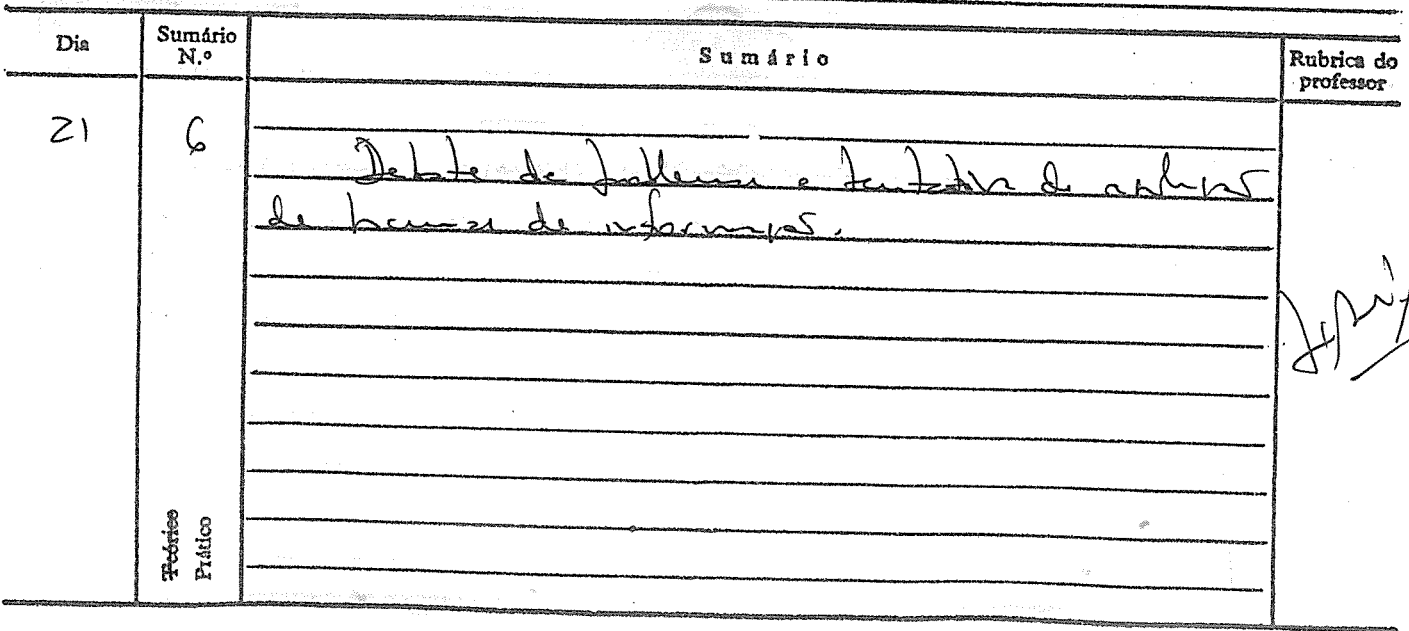 Dia
Sumário N.º
Sumário
Rubrica do professor
21
6
Debate de problemas e tentativa de
de de informação.
Teórico
Prático